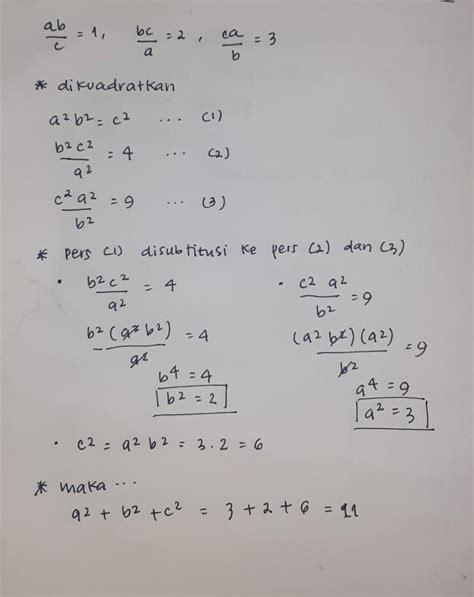 ab/c = 1, bc/a = 2, ca/b = 3
* dikuadratkan
a² b² = c² ... (1)
b² c²/a² = 4 ... (2)
c² a²/b² = 9 ... (3)
* pers (1) disubtitusi ke pers (2) dan (3)
• b² c²/a² = 4
b² (a² b²)/a² = 4
b⁴ = 4
b² = 2
• c² a²/b² = 9
(a² b²)(a²)/b² = 9
a⁴ = 9
a² = 3
• c² = a² b² = 3 . 2 = 6
* maka ...
a² + b² + c² = 3 + 2 + 6 = 11